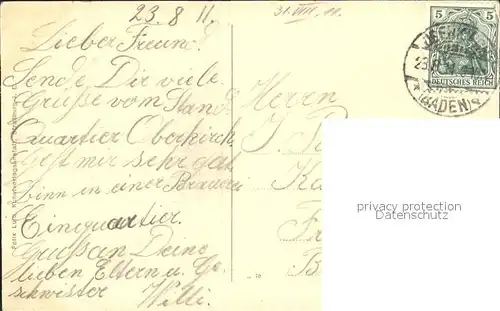 23.8 11.
31. VIII. 11.
Lieber Freund.
Sende Dir viele
Grüße vom Stand
Quartier Oberkirch
Geht mir sehr gut
binn in einer Brauerei
Einquartier.
Gruß an Deine
lieben Eltern u. Ge-
schwister Willi.
Herrn
5 5
DEUTSCHES REICH
(BADEN)
privacy protection
Datenschutz